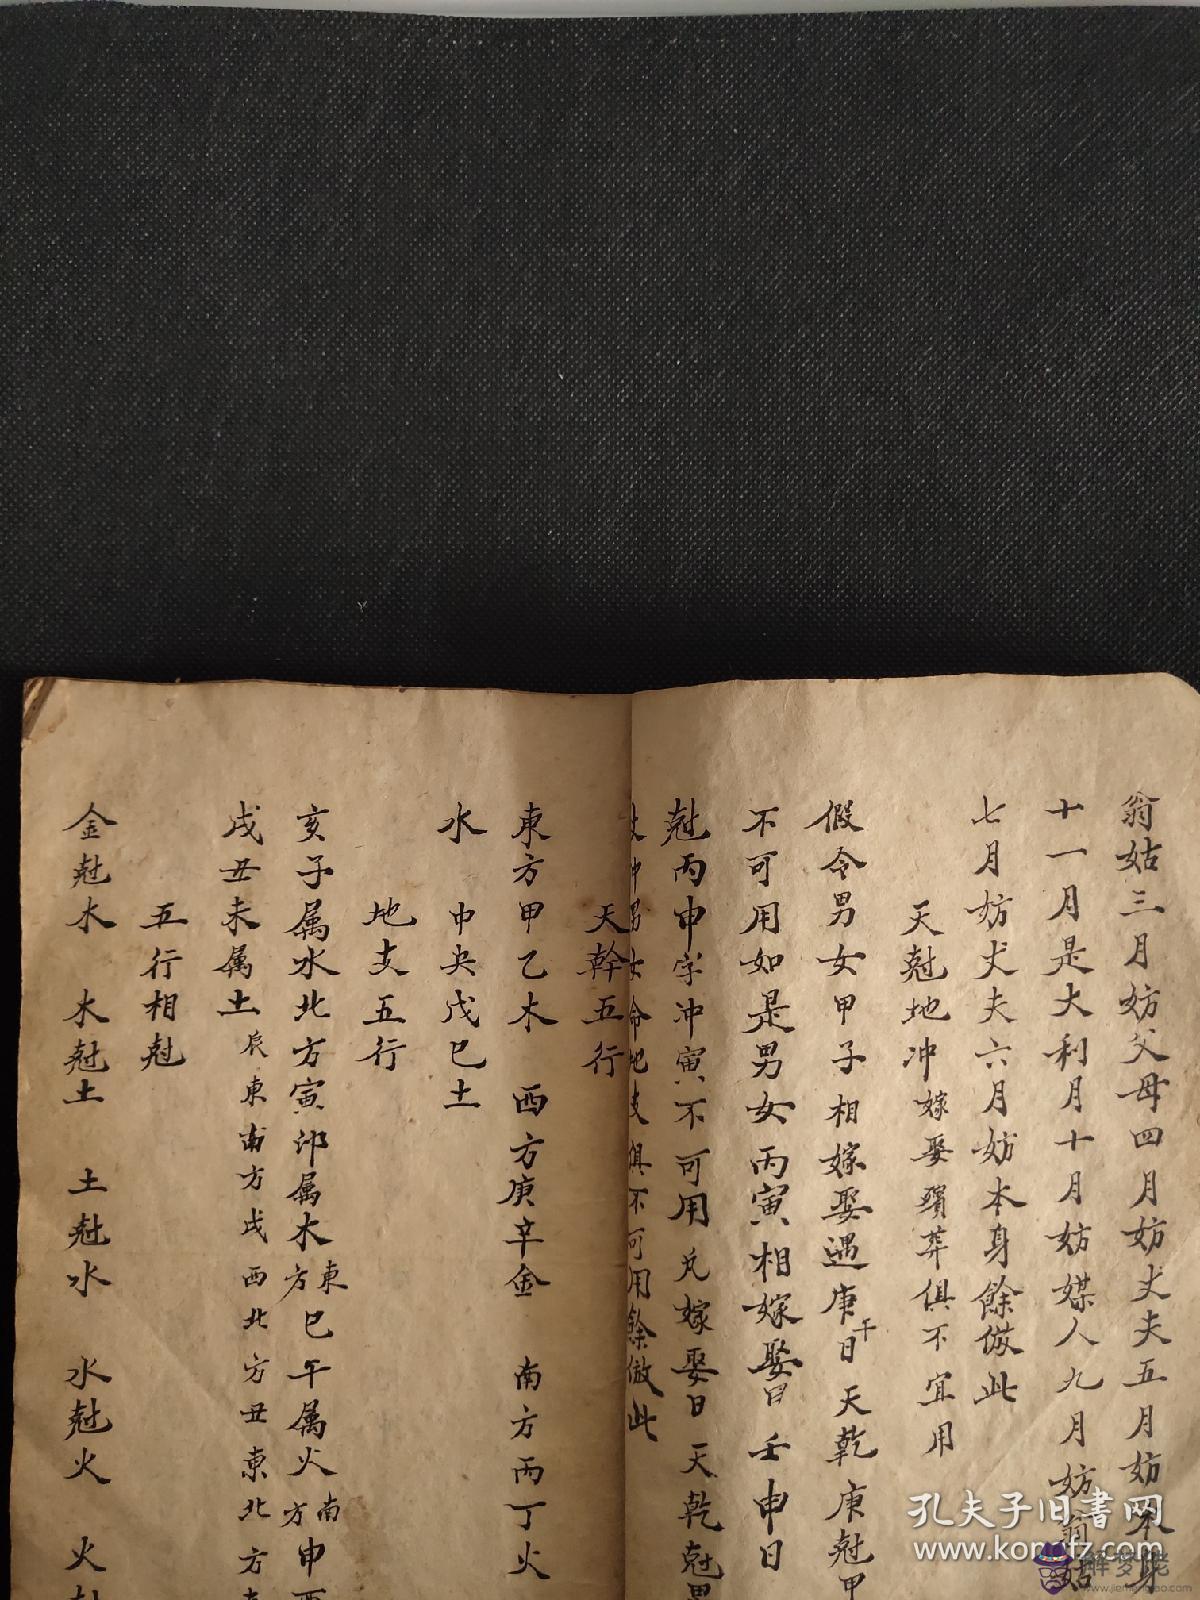 翁姑三月妨父母四月妨丈夫五月妨本身
十一月是大利月十月妨媒人九月妨翁姑
七月妨丈夫六月妨本身餘倣此
天尅地冲 嫁娶殯葬俱不宜用
假令男女甲子相嫁娶遇庚午日天乾庚尅甲
不可用如是男女丙寅相嫁娶日壬申日
尅丙申字冲寅不可用 凡嫁娶日天乾尅男
冲男女命地支俱不可用餘倣此
天幹五行
東方甲乙木 西方庚辛金 南方丙丁火
水 中央戊巳土
地支五行
亥子属水北方寅卯属木東方巳午属火南方申酉
戌丑未属土辰東南方戌西北方丑東北方
五行相尅
金尅木 木尅土 土尅水 水尅火 火尅
孔夫子旧书网
www.kongfz.com
解梦佬
www.jiemenglao.com